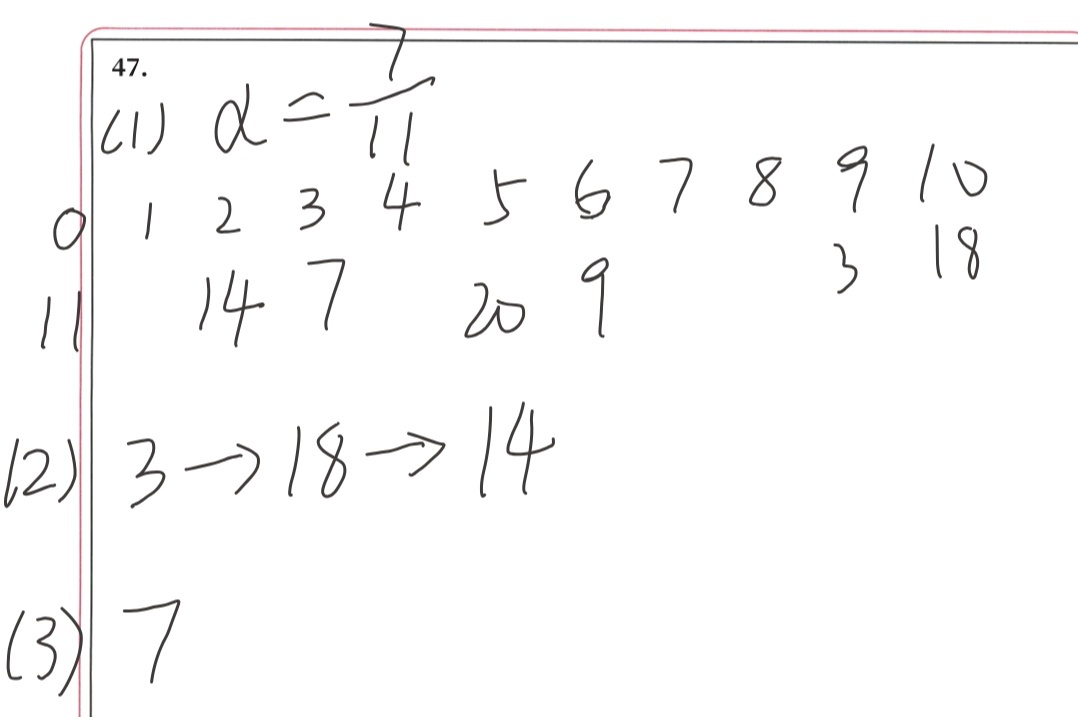 47.
(1) α = 7/11
0 1 2 3 4 5 6 7 8 9 10
11 14 7 20 9 3 18
(2) 3 → 18 → 14
(3) 7